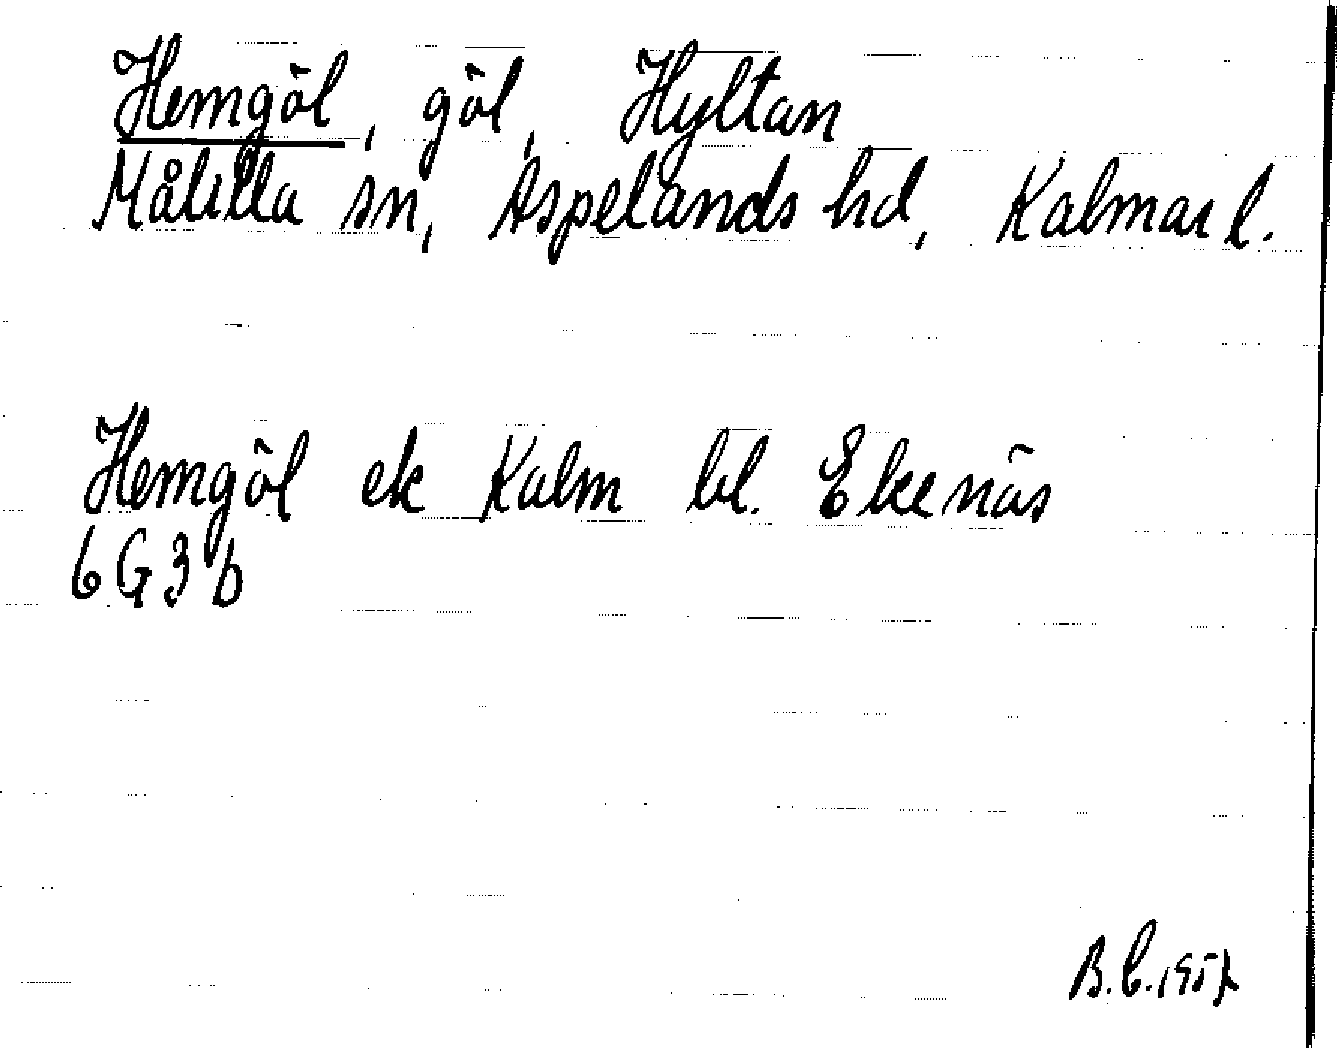 Hemgöl, göl, Hyltan
Målilla sn, Aspelands hd, Kalmar l.
Hemgöl ek Kalm bl. Ekenäs
6G3b
B.C.1957